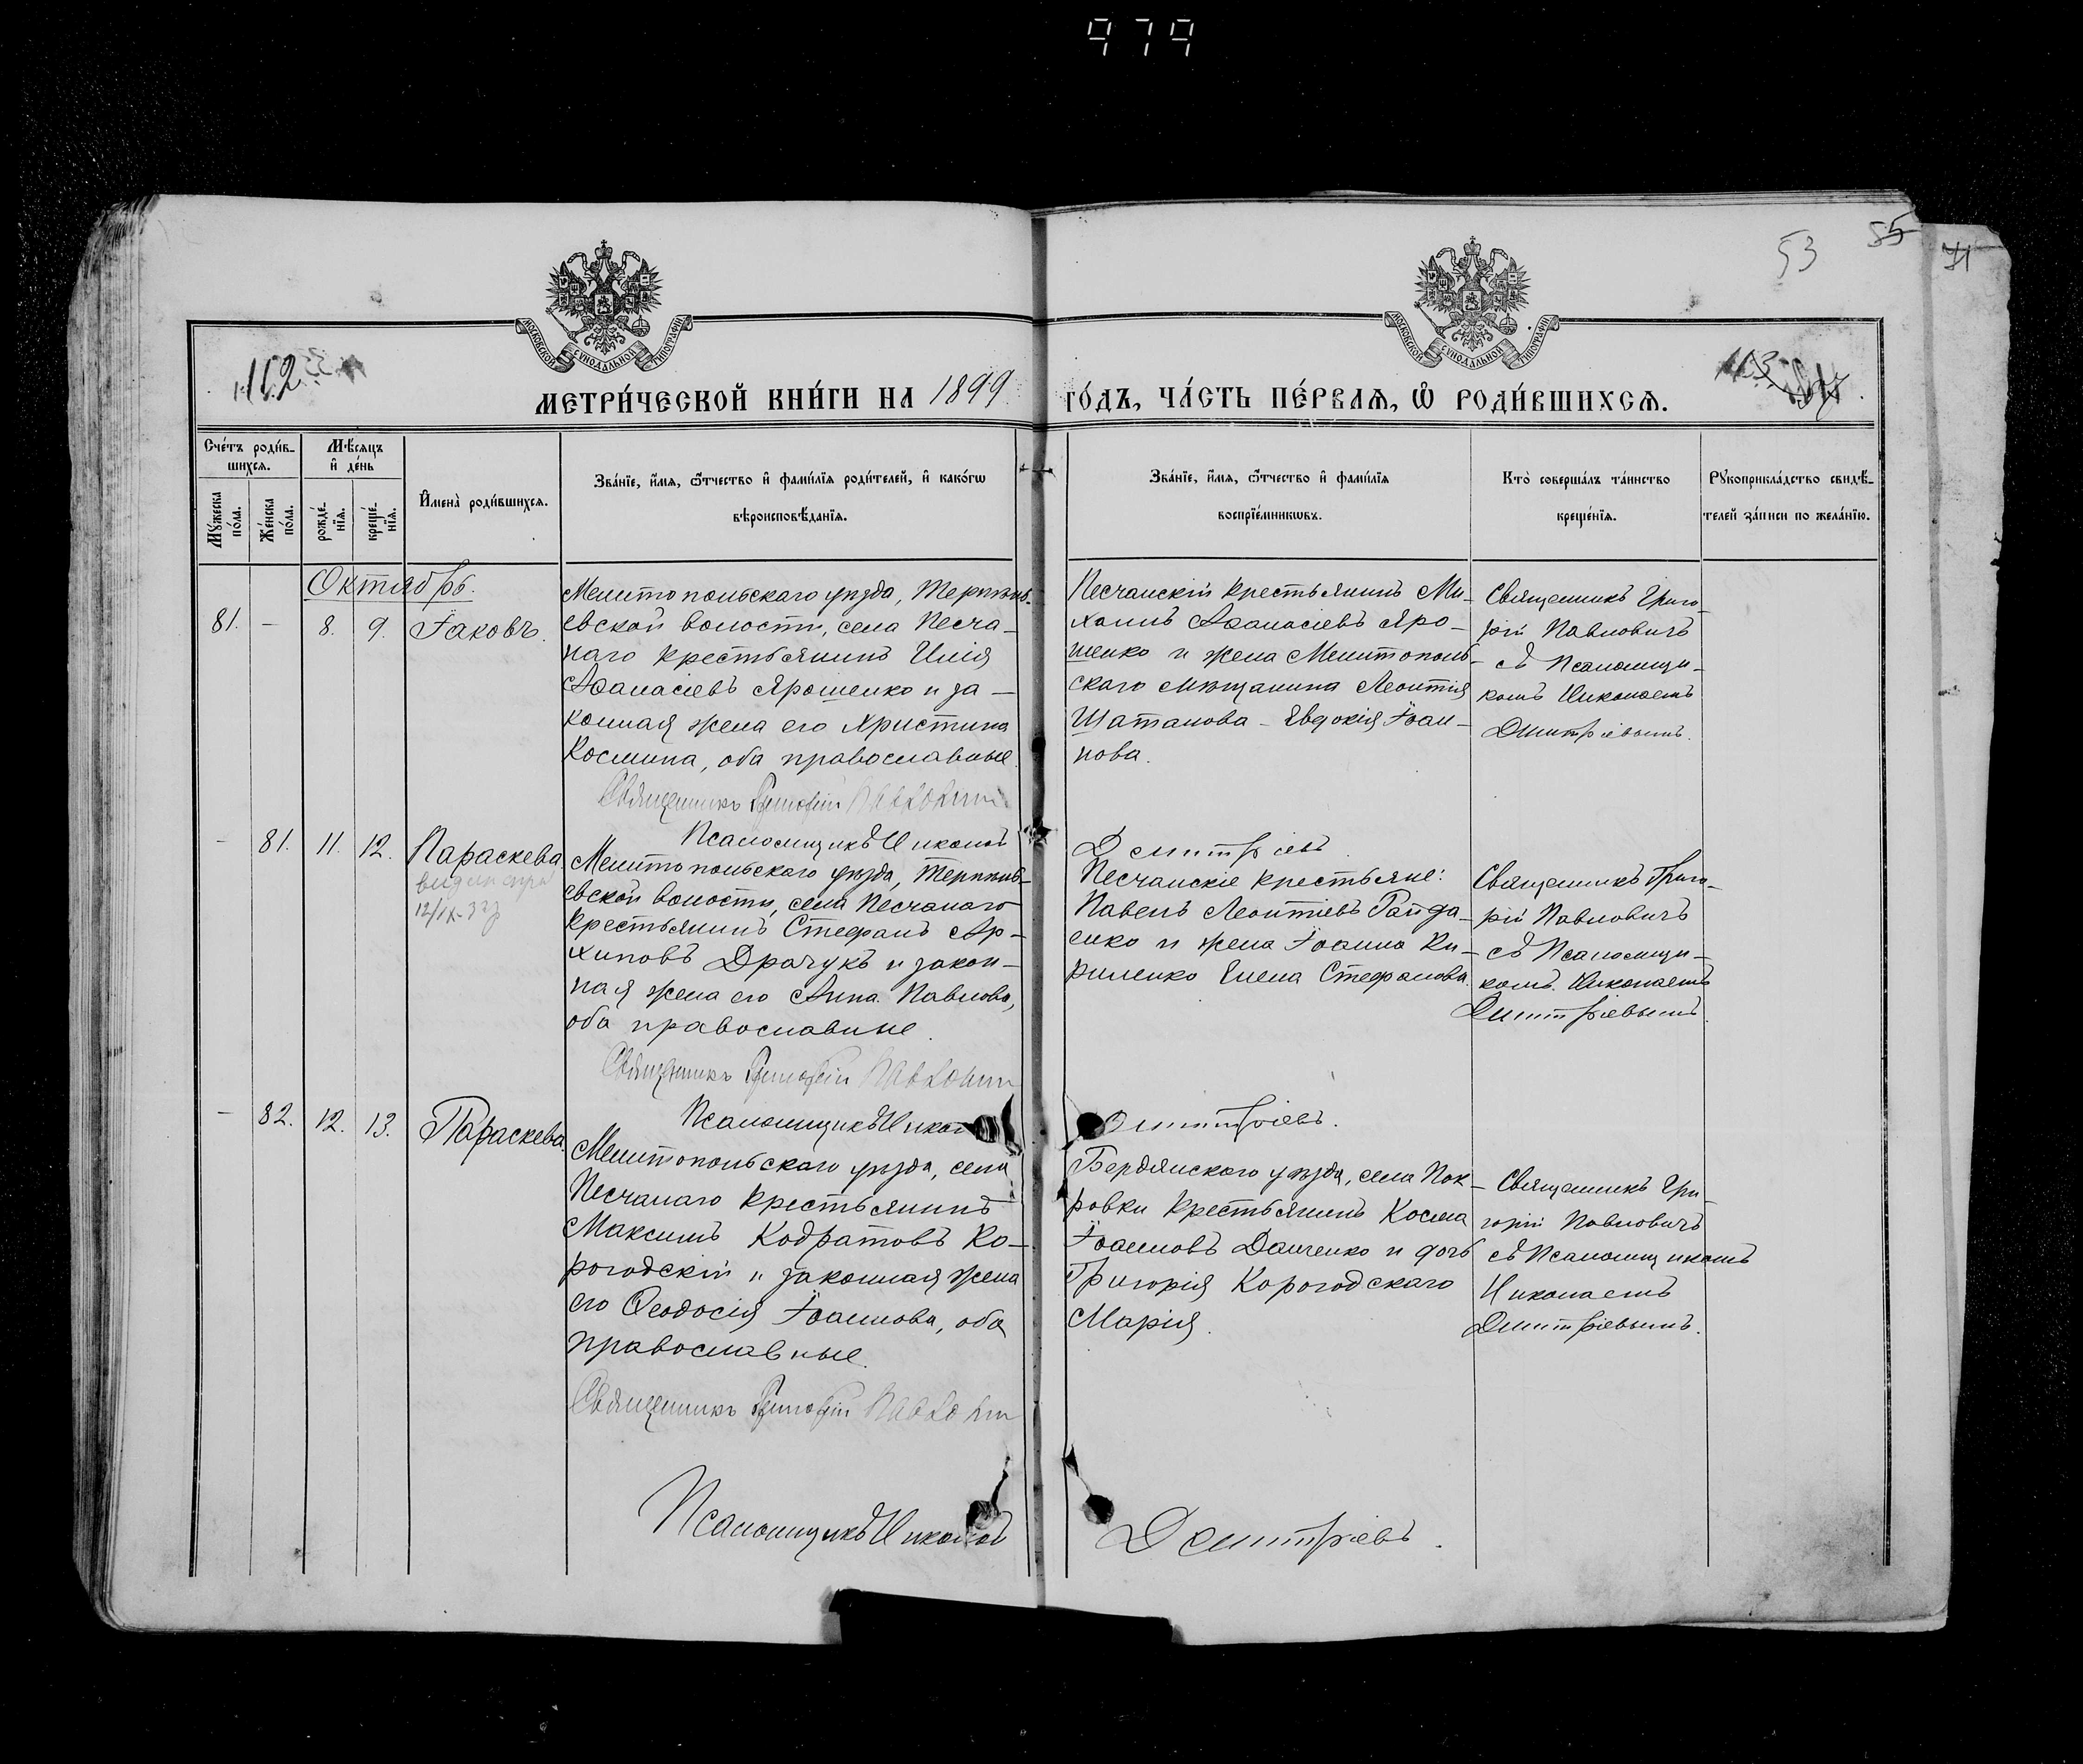 979
53
55
71
МОСКОВСКОЙ СУНОДАЛЬНОЙ ТИПОГРАФІИ
МОСКОВСКОЙ СУНОДАЛЬНОЙ ТИПОГРАФІИ
112
113
МЕТРИ́ЧЕСКОЙ КНИ́ГИ НА 1899 ГО́ДЪ, ЧА́СТЬ ПЕ́РВАѦ, Ѡ҆ РОДИ́ВШИХСѦ.
Сче́тъ роди́вшихсѧ.
Мѣ́сѧцъ и҆ де́нь
Мꙋ́жеска по́ла.
Же́нска по́ла.
рожде́нїѧ.
креще́нїѧ.
И҆мена̀ роди́вшихсѧ.
Зва́нїе, и҆́мѧ, ѻ҆́тчество и҆ фами́лїѧ роди́телей, и҆ како́гѡ
вѣроисповѣ́данїѧ.
Зва́нїе, и҆́мѧ, ѻ҆́тчество и҆ фами́лїѧ
воспрїе́мникѡвъ.
Кто̀ соверша́лъ та́инство
креще́нїѧ.
Рꙋкоприкла́дство свидѣ́-
телей за́писи по жела́нїю.
Октябрь.
81. – 8. 9. Іаковъ.
Мелитопольскаго уѣзда, Терпѣнь-
евской волости, села Песча-
наго крестьянинъ Илія
Аѳанасіевъ Ярошенко и за-
конная жена его Христина
Космина, оба православные.
Священникъ Григорій Павловичъ
Псаломщикъ Николай Дмитріевъ.
Песчанскій крестьянинъ Ми-
хаилъ Аѳанасіевъ Яро-
шенко и жена Мелитополь-
скаго мѣщанина Леонтія
Шаталова – Евдокія Іоан-
нова.
Священникъ Григо-
рій Павловичъ
съ Псаломщи-
комъ Николаемъ
Дмитріевымъ.
– 81. 11. 12. Параскева
12/IX-37
Мелитопольскаго уѣзда, Терпѣнь-
евской волости, села Песчанаго
крестьянинъ Стефанъ Ар-
хиповъ Драчукъ и закон-
ная жена его Анна Павлова,
оба православные.
Священникъ Григорій Павловичъ
Псаломщикъ Николай Дмитріевъ.
Песчанскіе крестьяне:
Павелъ Леонтіевъ Гайда-
енко и жена Іоанна Ки-
риленко Елена Стефанова.
Священникъ Григо-
рій Павловичъ
съ Псаломщи-
комъ Николаемъ
Дмитріевымъ.
– 82. 12. 13. Параскева.
Мелитопольскаго уѣзда, села
Песчанаго крестьянинъ
Максимъ Кодратовъ Ко-
рогодскій и законная жена
его Ѳеодосія Іоаннова, оба
православные.
Священникъ Григорій Павловичъ
Псаломщикъ Николай Дмитріевъ.
Бердянскаго уѣзда, села Пок-
ровки крестьянинъ Косма
Іоанновъ Данченко и дочь
Григорія Корогодскаго
Марія.
Священникъ Гри-
горій Павловичъ
съ Псаломщикомъ
Николаемъ
Дмитріевымъ.